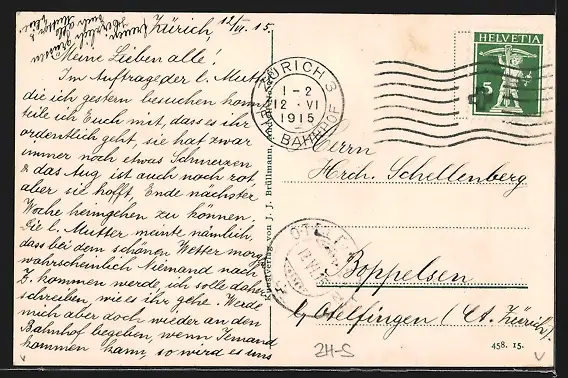 Zürich, 12/VI. 15.
Meine Lieben alle!
Im Auftrage der l. Mutter
die ich gestern besuchen konnte
teile ich Euch mit, dass es ihr
ordentlich geht, sie hat zwar
immer noch etwas Schmerzen
& das Aug ist auch noch rot
aber sie hofft Ende nächster
Woche heimgehen zu können.
Die l. Mutter meinte nämlich,
dass bei dem schönen Wetter morgen
wahrscheinlich Niemand nach
Z. kommen werde, ich solle daher
schreiben, wie es ihr gehe. Werde
mich aber doch wieder an den
Bahnhof begeben, wenn Jemand
kommen kann, so wird es uns
Kunstverlag von J. J. Brüllmann,
HELVETIA
5
ZÜRICH 3
1-2
12 · VI
1915
BAHNHOF
Herrn
Hrch. Schellenberg
Boppelsen
b/ Otelfingen (Ct. Zürich).
458. 15.
2H-S